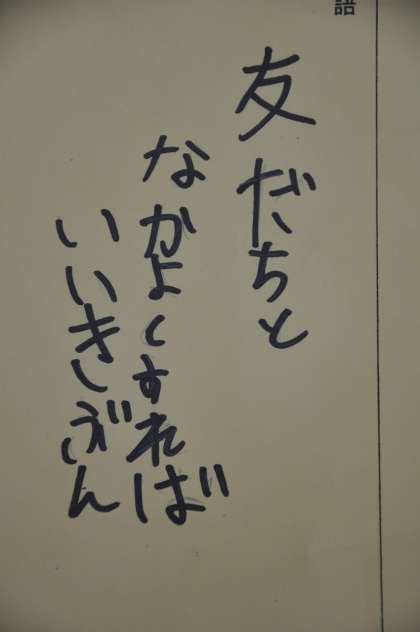 語
友だちと
なかよくすれば
いいきぶん